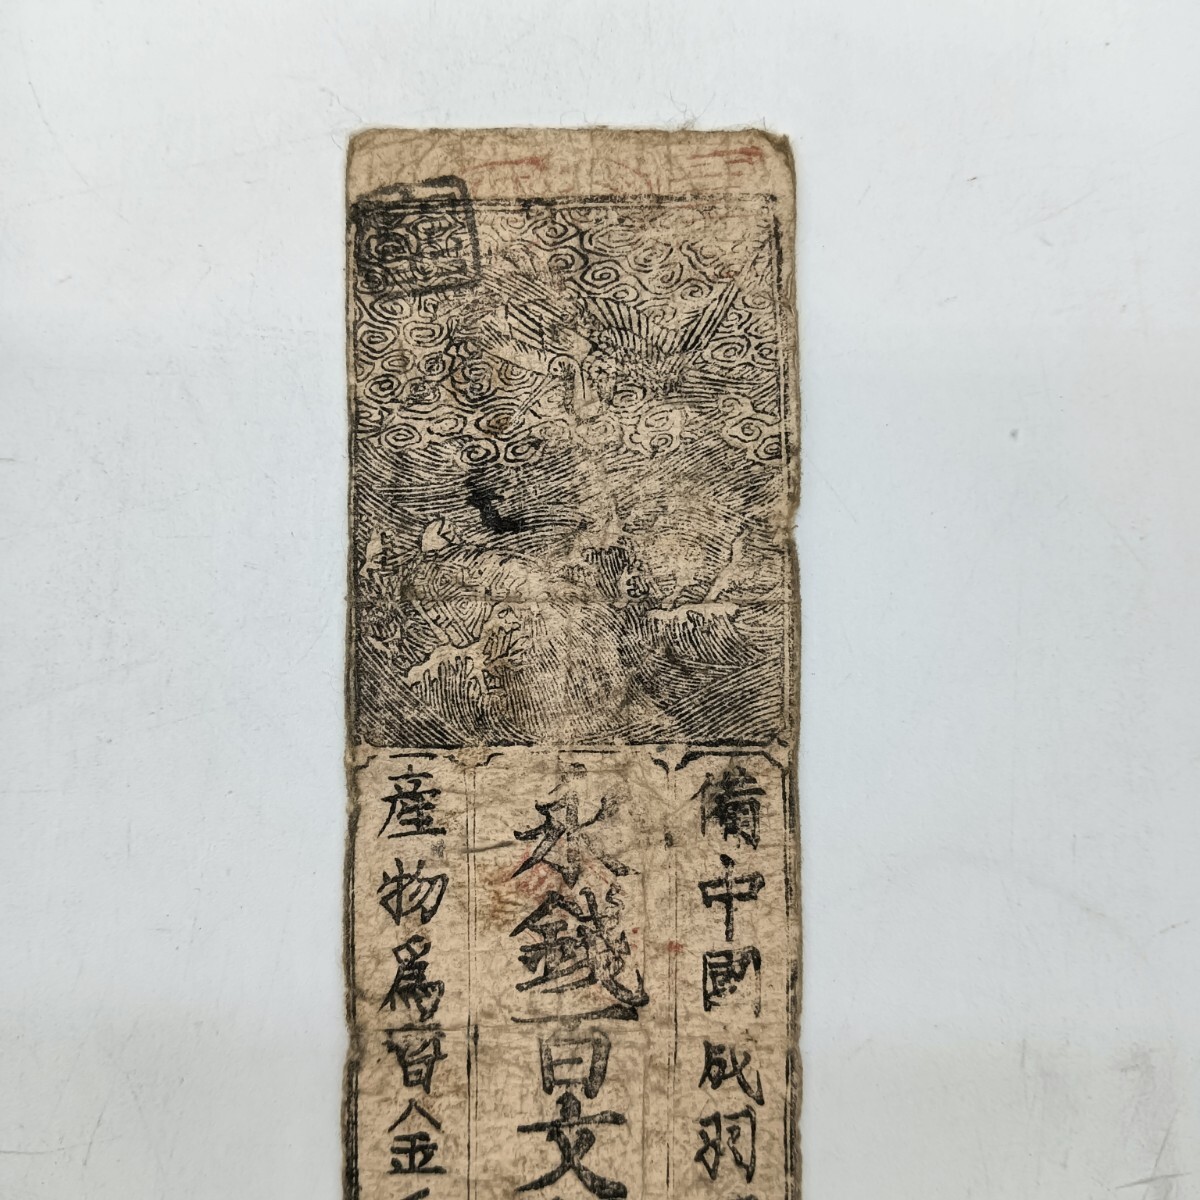 備中國成羽
永錢百文
産物爲